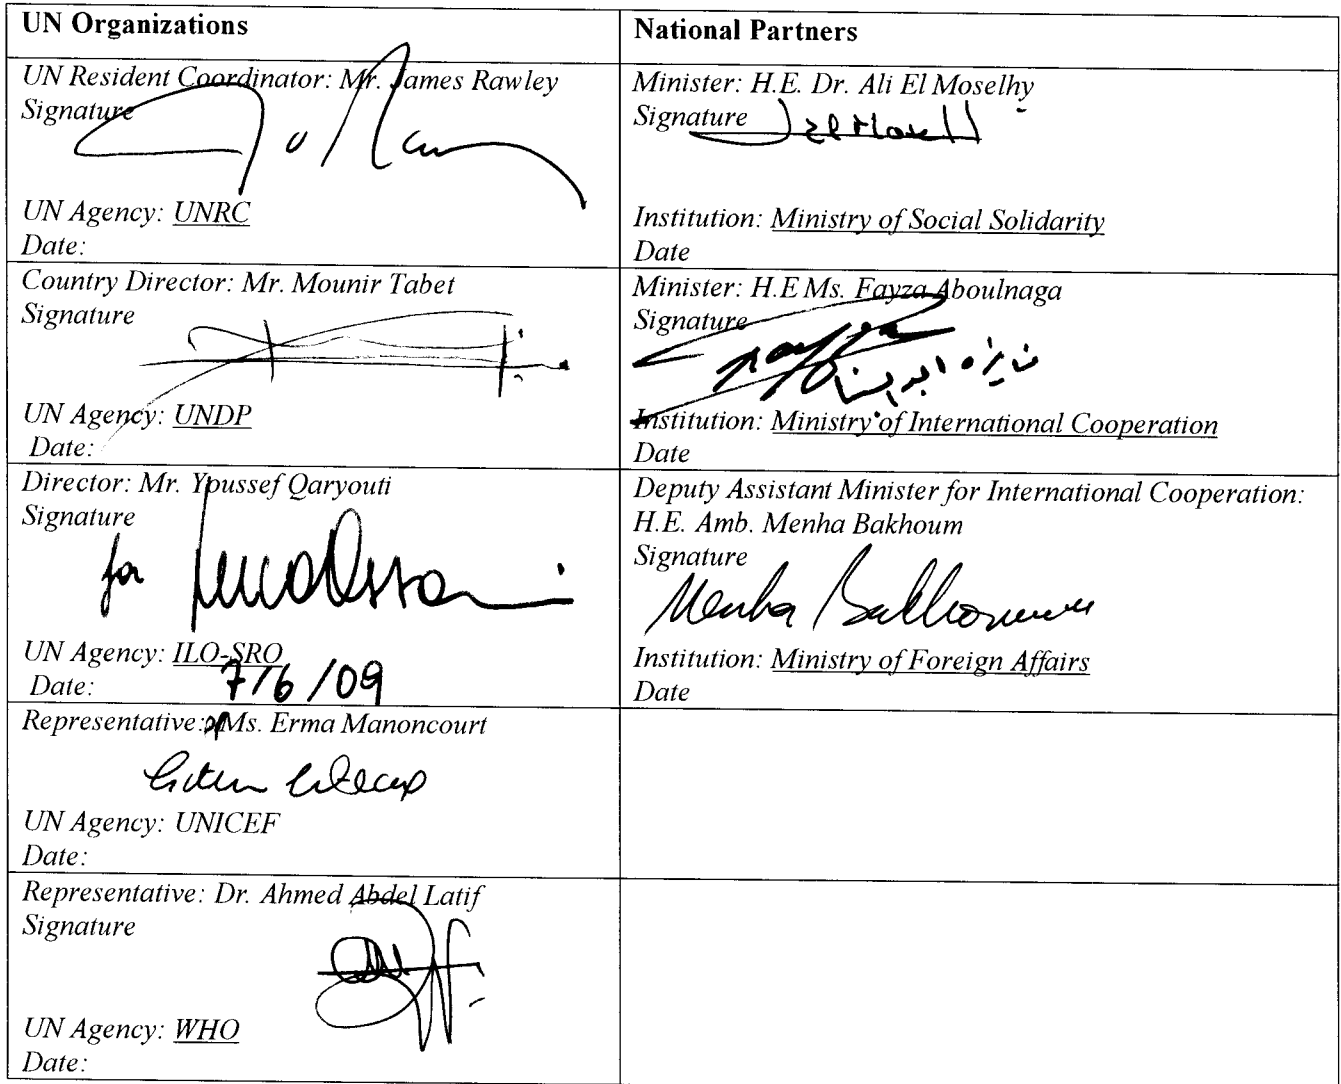 UN Organizations
National Partners
UN Resident Coordinator: Mr. James Rawley
Signature
UN Agency: UNRC
Date:
Minister: H.E. Dr. Ali El Moselhy
Signature
Institution: Ministry of Social Solidarity
Date
Country Director: Mr. Mounir Tabet
Signature
UN Agency: UNDP
Date:
Minister: H.E Ms. Fayza Aboulnaga
Signature
Institution: Ministry of International Cooperation
Date
Director: Mr. Youssef Qaryouti
Signature
for
UN Agency: ILO-SRO
Date: 7/6/09
Deputy Assistant Minister for International Cooperation:
H.E. Amb. Menha Bakhoum
Signature
Menha Bakhoum
Institution: Ministry of Foreign Affairs
Date
Representative: Ms. Erma Manoncourt
UN Agency: UNICEF
Date:
Representative: Dr. Ahmed Abdel Latif
Signature
UN Agency: WHO
Date: